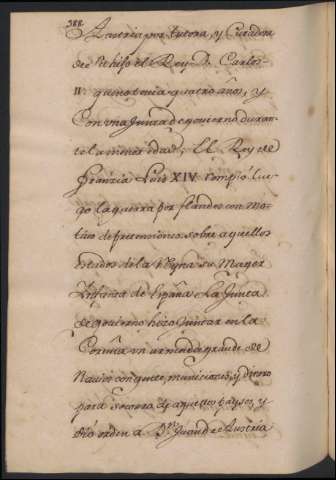 388.
Austria por tutora, y Curadora
de su hijo el Rey D. Carlos
II. que no tenia quatro años, y
Con vna Junta de govierno duran-
te la menor edad; El Rey de
franzia Luis XIV. rompió lue-
go la guerra por flandes con mo-
tivo de pretensiones sobre aquellos
estados de la Reyna su Muger
Infanta de España. La Junta
de govierno hizo Juntar en la
Coruña vn armada grande de
Navios con gente, municiones, y dinero
para socorro de aquellos Payses, y
dió orden a Dn. Juan de Austria